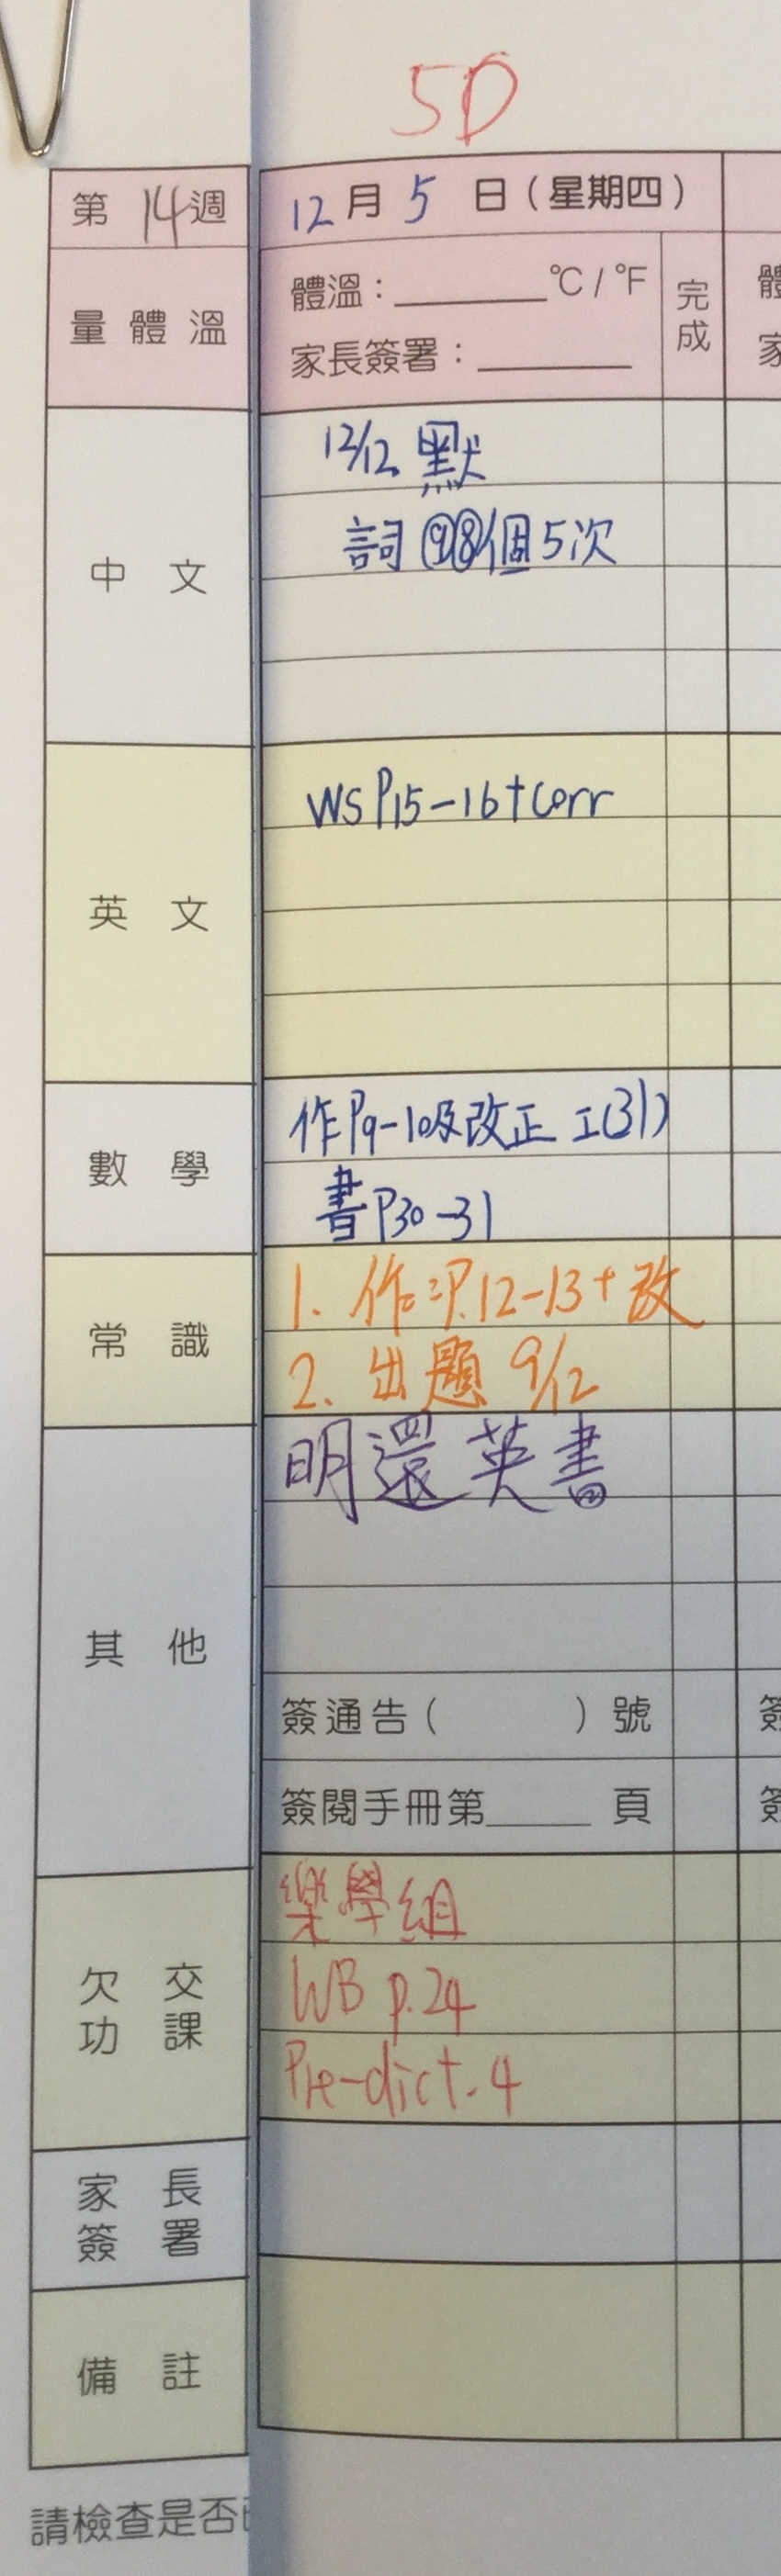 5D
第14週
12月5日(星期四)
量體溫
體溫:______°C/°F
家長簽署:______
完成
中文
12/12 默
詞⑨⑧個5次
英文
WS P15-16+Corr
數學
作P9-10及改正 工(31)
書P30-31
常識
1. 作:P.12-13+改
2. 出題 9/12
其他
明還英書
簽通告( )號
簽閱手冊第____頁
欠交功課
樂學組
WB p.24
Pre-dict. 4
家長簽署
備註
請檢查是否